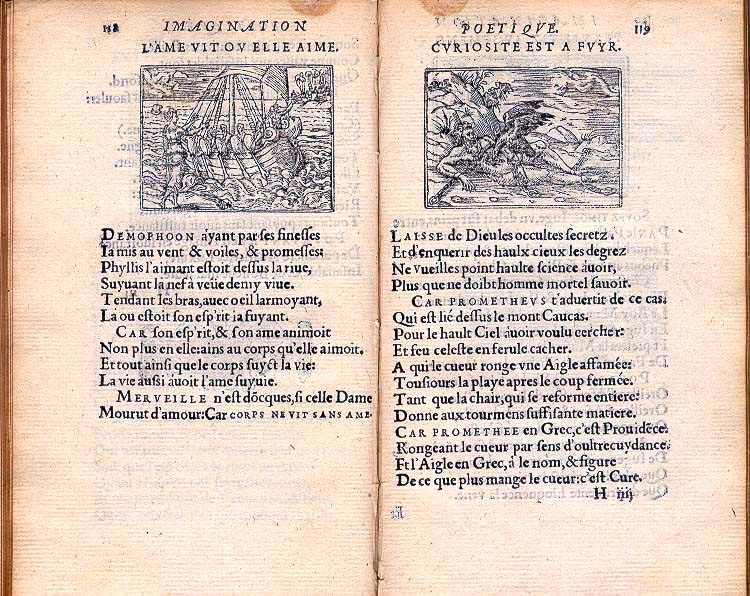 118 IMAGINATION
L'AME VIT OV ELLE AIME.
DEMOPHOON áyant par ses finesses
Ia mis au vent & voiles, & promesses:
Phyllis l'aimant estoit dessus la riue,
Suyuant la nef à veüe demy viue.
Tendant les bras, auec œil larmoyant,
La ou estoit son esp'rit ia fuyant.
CAR son esp'rit, & son ame animoit
Non plus en elle: ains au corps qu'elle aimoit.
Et tout ainsi que le corps suyct la vie:
La vie aussi áuoit l'ame suyuie.
MERVEILLE n'est dõcques, si celle Dame
Mourut d'amour: Car CORPS NE VIT SANS AME.
POETIQVE. 119
CVRIOSITE EST A FVYR.
LAISSE de Dieu les occultes secretz,
Et d'enquerir des haulx cieux les degrez
Ne vueilles point haulte science áuoir,
Plus que ne doibt homme mortel sauoir.
CAR PROMETHEVS t'aduertit de ce cas,
Qui est lié dessus le mont Caucas.
Pour le hault Ciel áuoir voulu cercher:
Et feu celeste en ferule cacher.
A qui le cueur ronge vne Aigle affamée:
Tousiours la playe apres le coup fermée.
Tant que la chair, qui se reforme entiere:
Donne aux tourmens suffisante matiere.
CAR PROMETHEE en Grec, c'est Prouidẽce:
Rongeant le cueur par sens d'oultrecuydance.
Et l'Aigle en Grec, á le nom, & figure
De ce que plus mange le cueur: c'est Cure.
H iiij